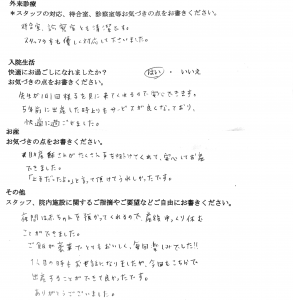 外来診療
＊スタッフの対応、待合室、診察室等お気づきの点をお書きください。
待合室、診察室とも清潔です。
スタッフの方も優しく対応して下さいました。
入院生活
快適にお過ごしになれましたか？ はい ・ いいえ
お気づきの点をお書きください。
先生が1日1回様子を見に来てくれるので安心できます。
5年前に出産した時よりもサービスが良くなっており、
快適に過ごせました。
お産
お気づきの点をお書きください。
助産師さんがたくさん声を掛けてくれて、安心してお産
できました。
「上手だったよ」と言って頂けてうれしかったです。
その他
スタッフ、院内施設に関するご指摘やご要望などご自由にお書きください。
夜間は赤ちゃんを預かってくれるので、産後ゆっくり休む
ことができました。
ご飯が豪華でとてもおいしく、毎回楽しみでした!!
1人目の時もお世話になりましたが、今回もこちらで
出産することができて良かったです。
ありがとうございました。